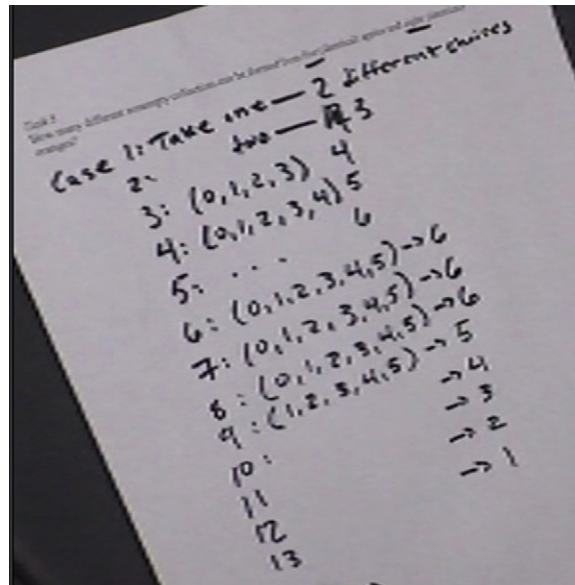 Task 5
How many different nonempty collections can be formed from five (identical) apples and eight (identical)
oranges?
Case 1: Take one — 2 different choices
2: two — 3
3: (0,1,2,3) 4
4: (0,1,2,3,4) 5
5: ... 6
6: (0,1,2,3,4,5) → 6
7: (0,1,2,3,4,5) → 6
8: (0,1,2,3,4,5) → 6
9: (1,2,3,4,5) → 5
10: → 4
11 → 3
12 → 2
13 → 1